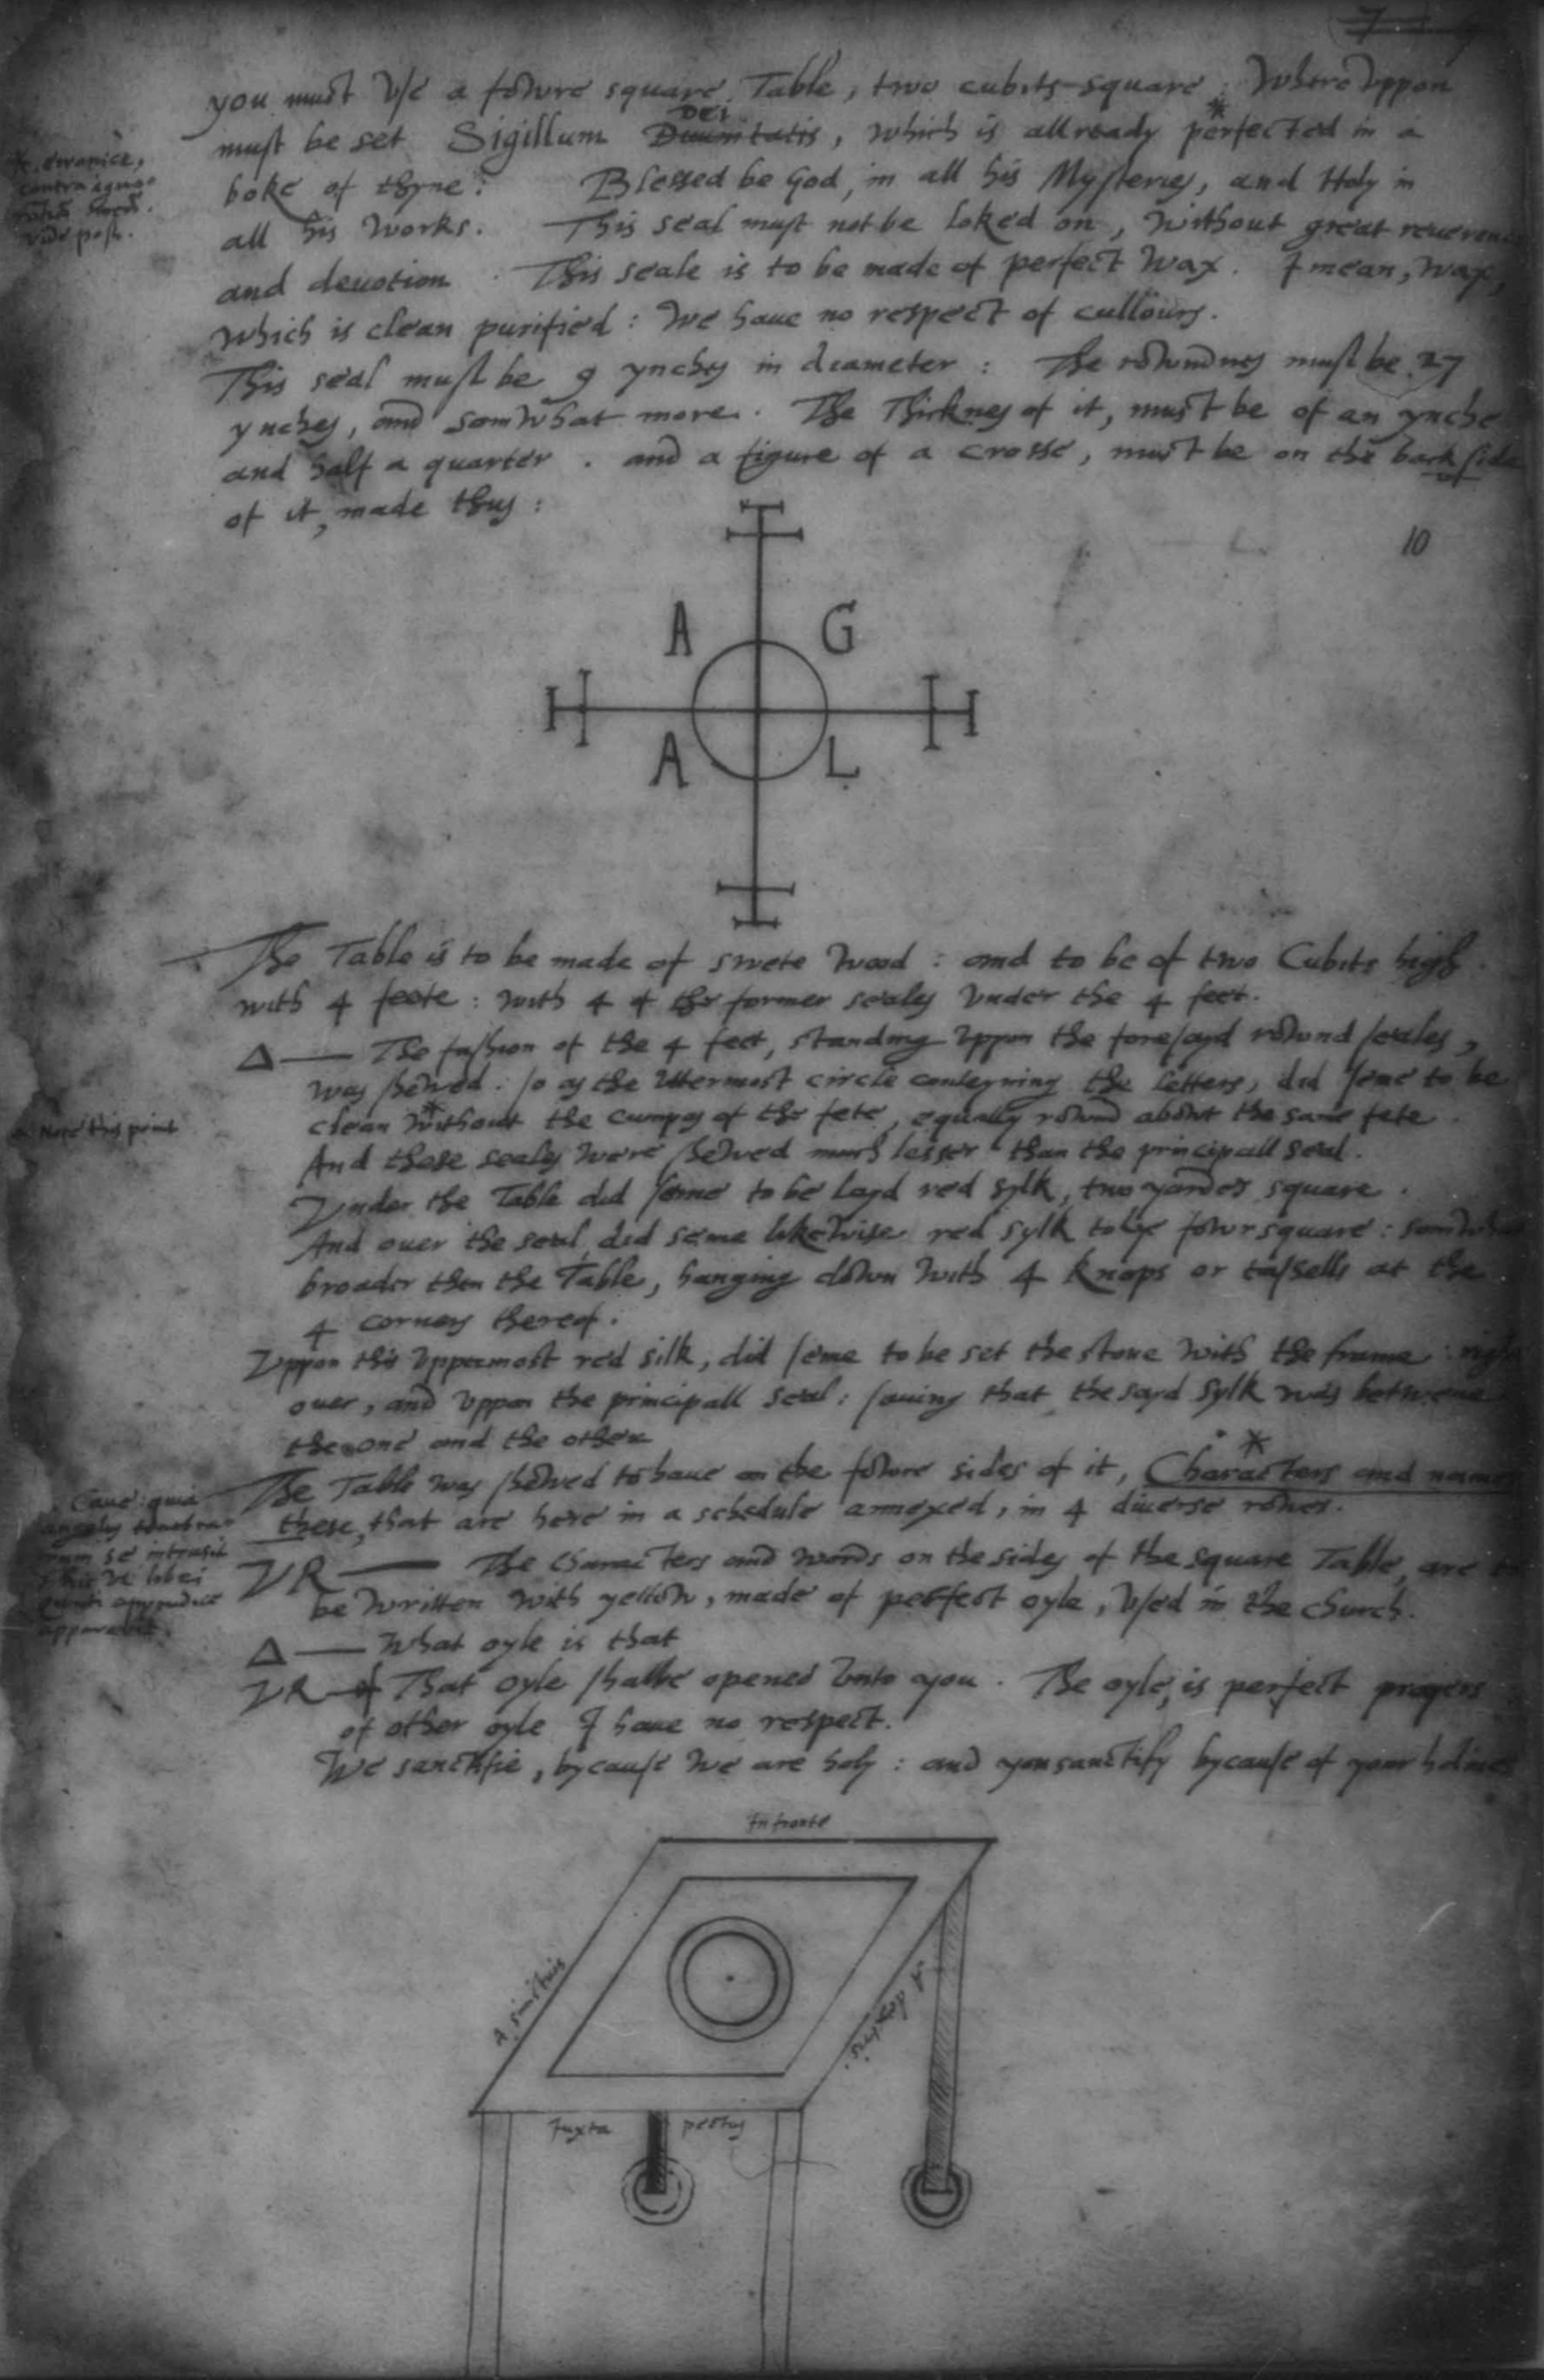 you must vse a fowre square Table, two cubits square: Where vppon
must be set Sigillum Dei Diuinitatis, which is allready perfected in a
boke of thyne: Blessed be God, in all his Mysteries, and Holy in
all his works. This seal must not be loked on, without great reuerence
and deuotion. This seale is to be made of perfect wax. I mean, wax,
which is clean purified: we haue no respect of cullours.
This seal must be 9 ynches in diameter: The rowndnes must be 27
ynches, and somwhat more. The Thicknes of it, must be of an ynche
and half a quarter. and a figure of a crosse, must be on the back side
of it, made thus:
10
A G
A L
The Table is to be made of swete wood: and to be of two Cubits high
with 4 feete: with 4 of the former seales vnder the 4 feet.
Δ — The fashion of the 4 feet, standing vppon the foresayd rownd seales,
was shewed: so as the vttermost circle conteyning the letters, did seme to be
clean without the cumpas of the fete, equally rownd abowt the same fete.
Note this point
And these seales were shewed much lesser than the principall seal.
Vnder the Table did seme to be layd red sylk, two yardes square.
And ouer the seal, did seme likewise red sylk to lye fowr square: somwhat
broader then the Table, hanging down with 4 knops or tassells at the
4 corners therof.
Vppon this vppermost red silk, did seme to be set the stone with the frame: right
ouer, and vppon the principall seal: sauing that the sayd sylk was betwene
the one and the other.
The Table was shewed to haue on the fowre sides of it, Characters and names
these, that are here in a schedule annexed, in 4 diuerse rowes.
Caue: quia
angelus tenebra-
rum se intrusit
VR — The Characters and words on the sides of the square Table, are to
be written with yellow, made of perfect oyle, vsed in the church.
Δ — What oyle is that
VR — That oyle shalbe opened vnto you. The oyle, is perfect prayers
of other oyle I haue no respect.
We sanctifie, bycause we are holy: and you sanctify bycause of your holines
In fronte
A sinistris
A dextris.
Juxta pectus